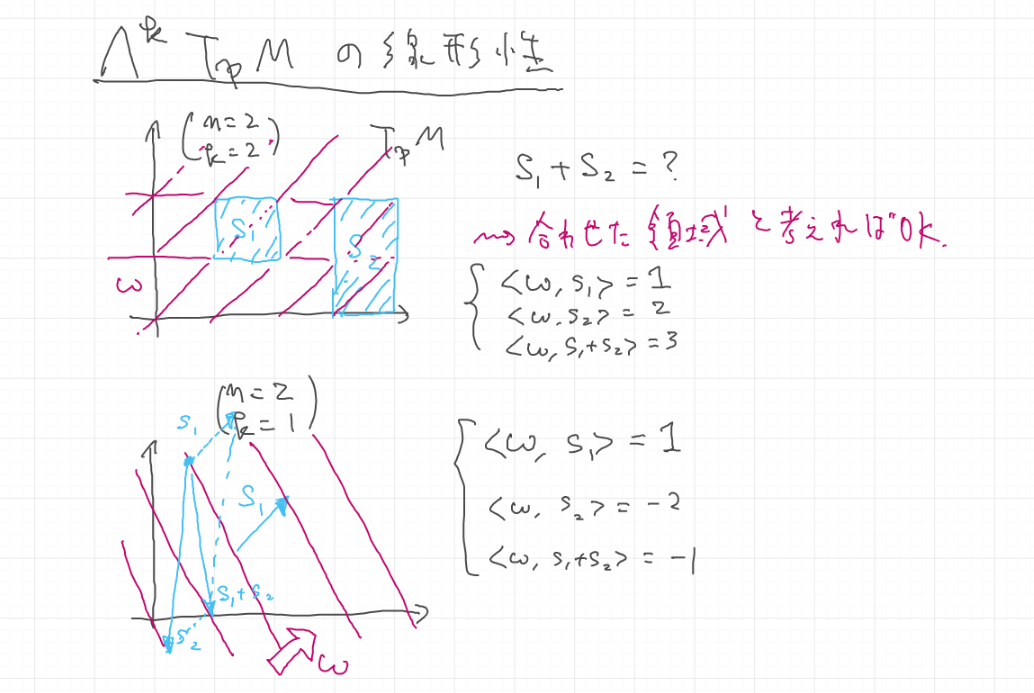 Λ^k TpM の線形性
(n=2
k=2)
TpM
S₁+S₂=?
⇝ 合わせた領域と考えればOK.
S₁
S₂
ω
<ω, S₁> = 1
<ω, S₂> = 2
<ω, S₁+S₂> = 3
(n=2
k=1)
S₁
S₁
S₁+S₂
S₂
ω
<ω, S₁> = 1
<ω, S₂> = -2
<ω, S₁+S₂> = -1